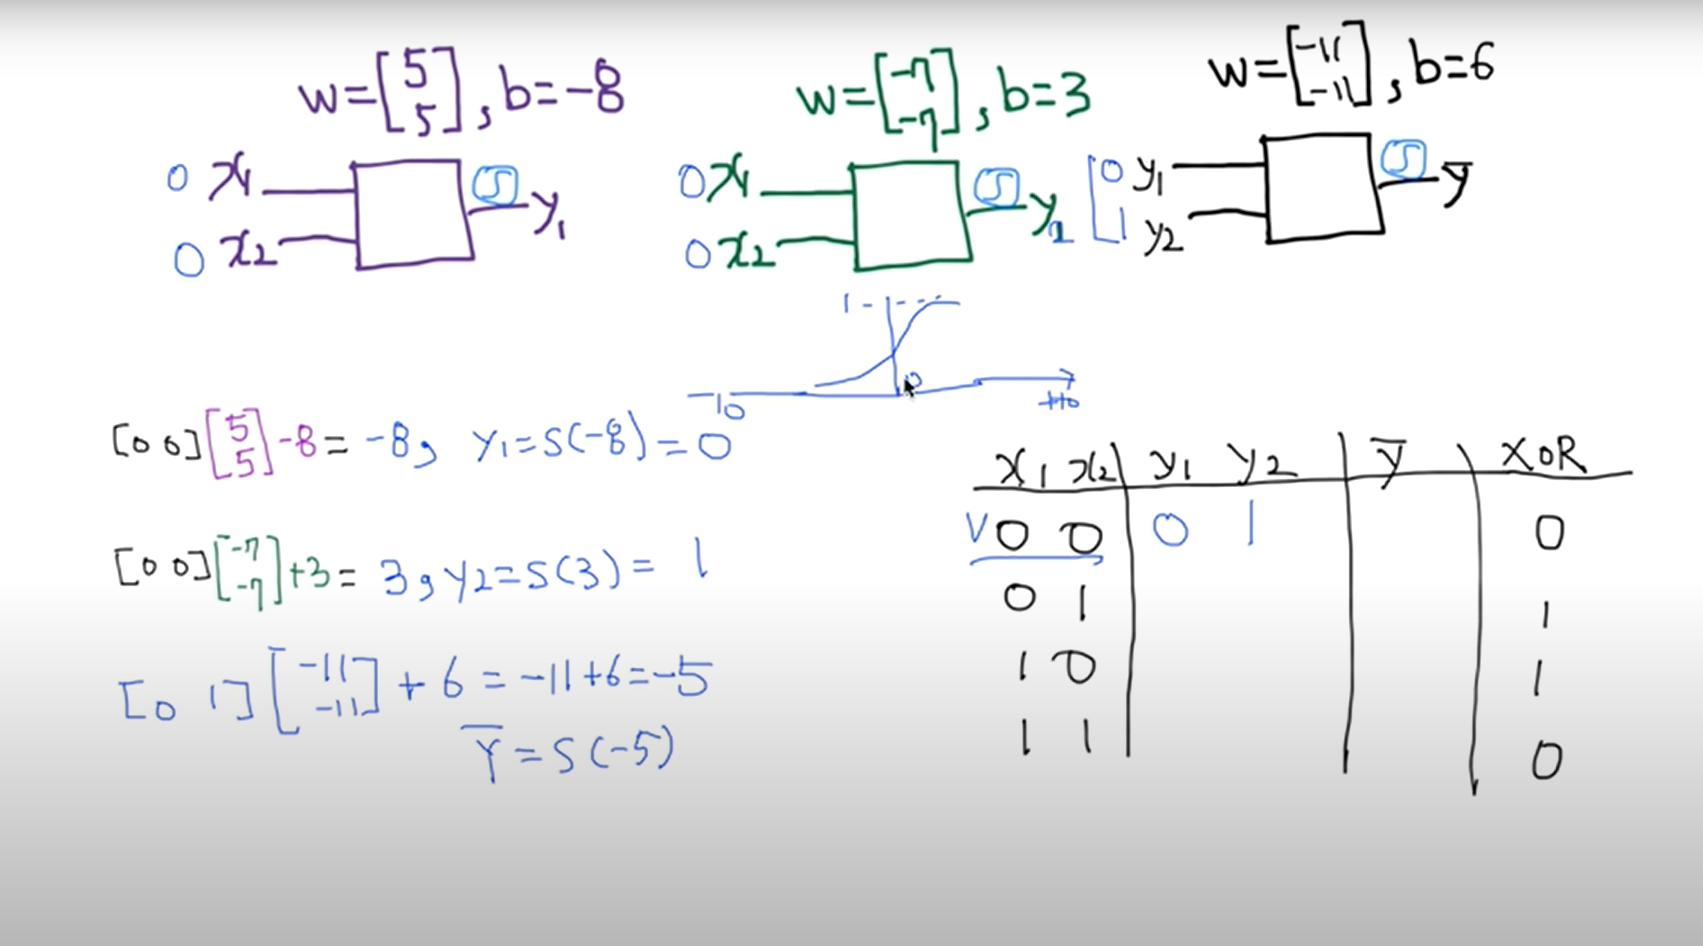 w=[5 5], b=-8
w=[-7 -7], b=3
w=[-11 -11], b=6
0 x1 S y1
0 x2
0 x1 S y2
0 x2
0 y1 S ȳ
1 y2
1
-10 0 +10
[0 0][5 5]-8= -8, y1=S(-8)=0
[0 0][-7 -7]+3= 3, y2=S(3)= 1
[0 1][-11 -11]+6=-11+6=-5
Ȳ=S(-5)
x1 x2 y1 y2 ȳ XOR
V 0 0 0 1 0
0 1 1
1 0 1
1 1 0